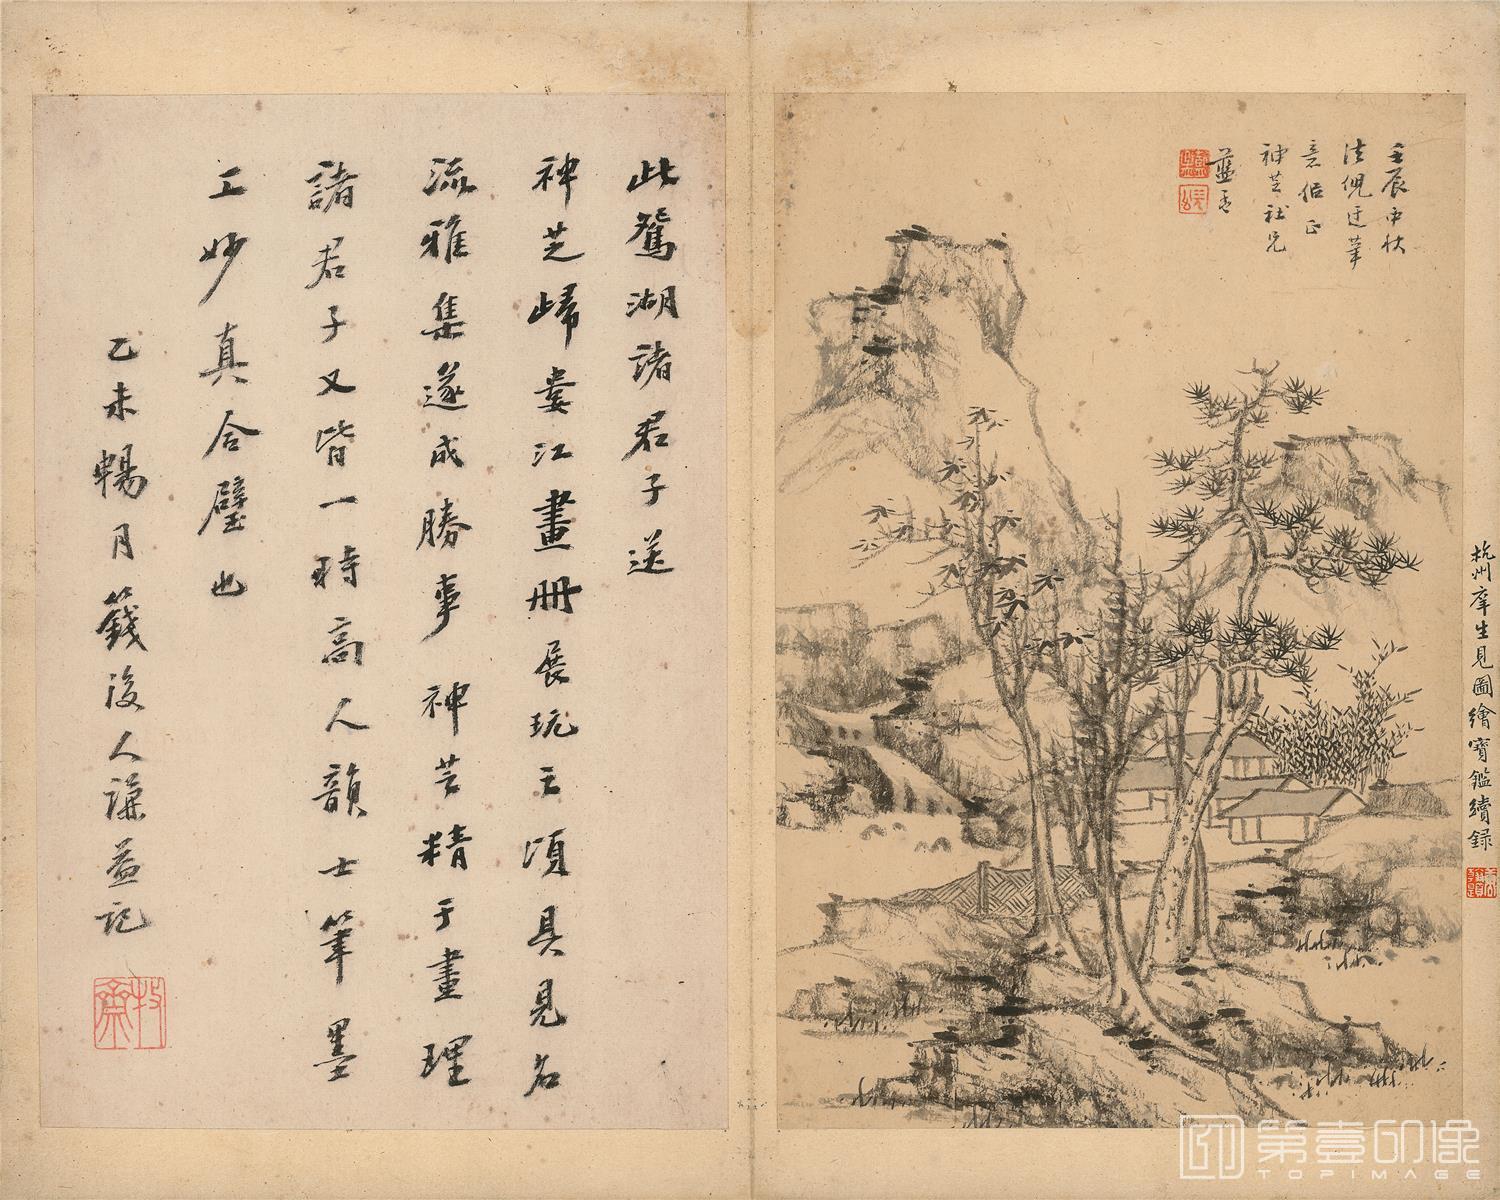 壬辰中秋
法倪迂筆
意似正
神芝社兄
藍孟
杭州羣生見圖繪寶鑑續錄
此鴛湖諸君子送
神芝歸婁江畫冊展玩之頃具見名
流雅集遂成勝事神芝精于畫理
諸君子又皆一時高人韻士筆墨
工妙真合璧也
乙未暢月籛後人謙益記
第壹印像
TOPIMAGE